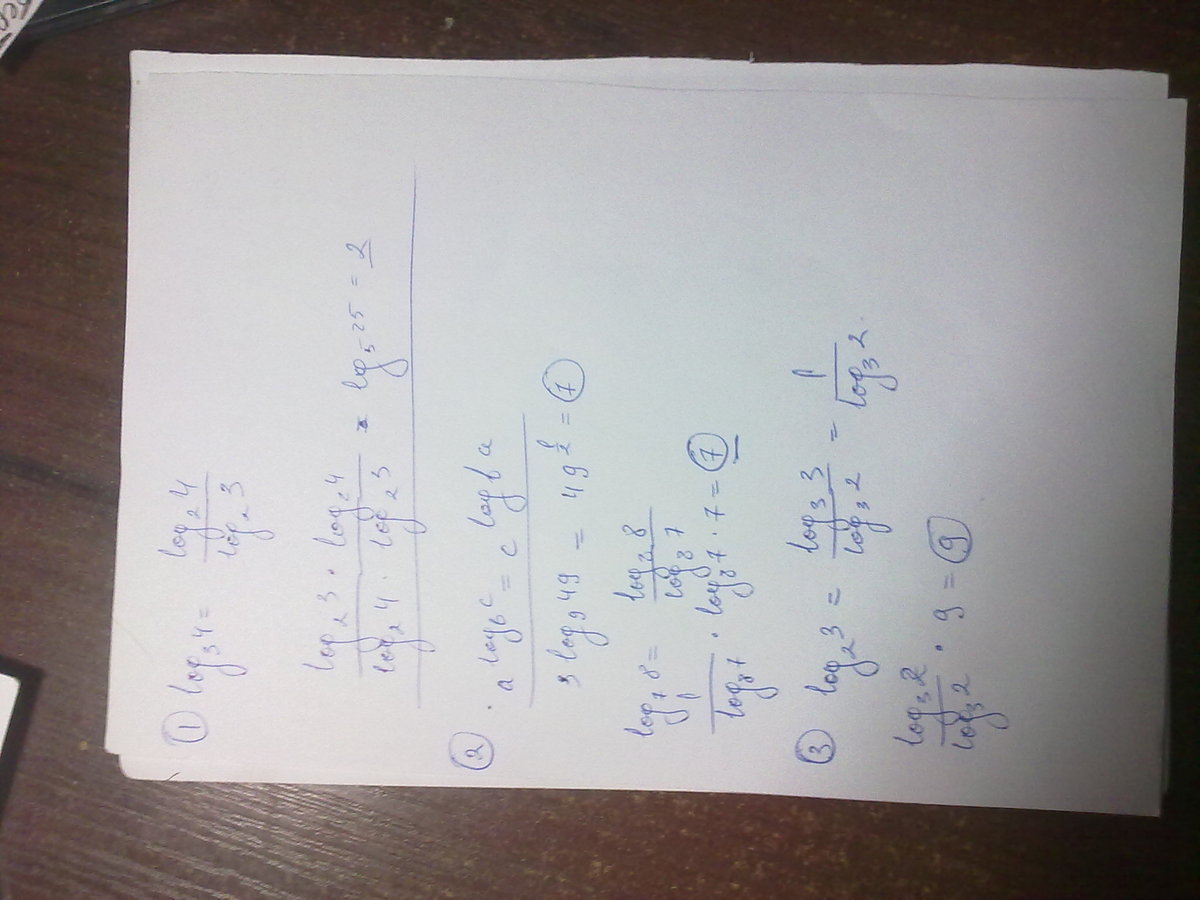 ① log₃4 = log₂4 / log₂3
log₂3 · log₂4 / log₂4 · log₂3 = log₅25 = 2
② · a^(log_b c) = c^(log_b a)
3^(log₉49) = 49^(1/2) = 7
log₇8 = log₈8 / log₈7
1 / log₈7 · log₈7 · 7 = 7
③ log₂3 = log₃3 / log₃2 = 1 / log₃2 .
log₃2 / log₃2 · 9 = 9